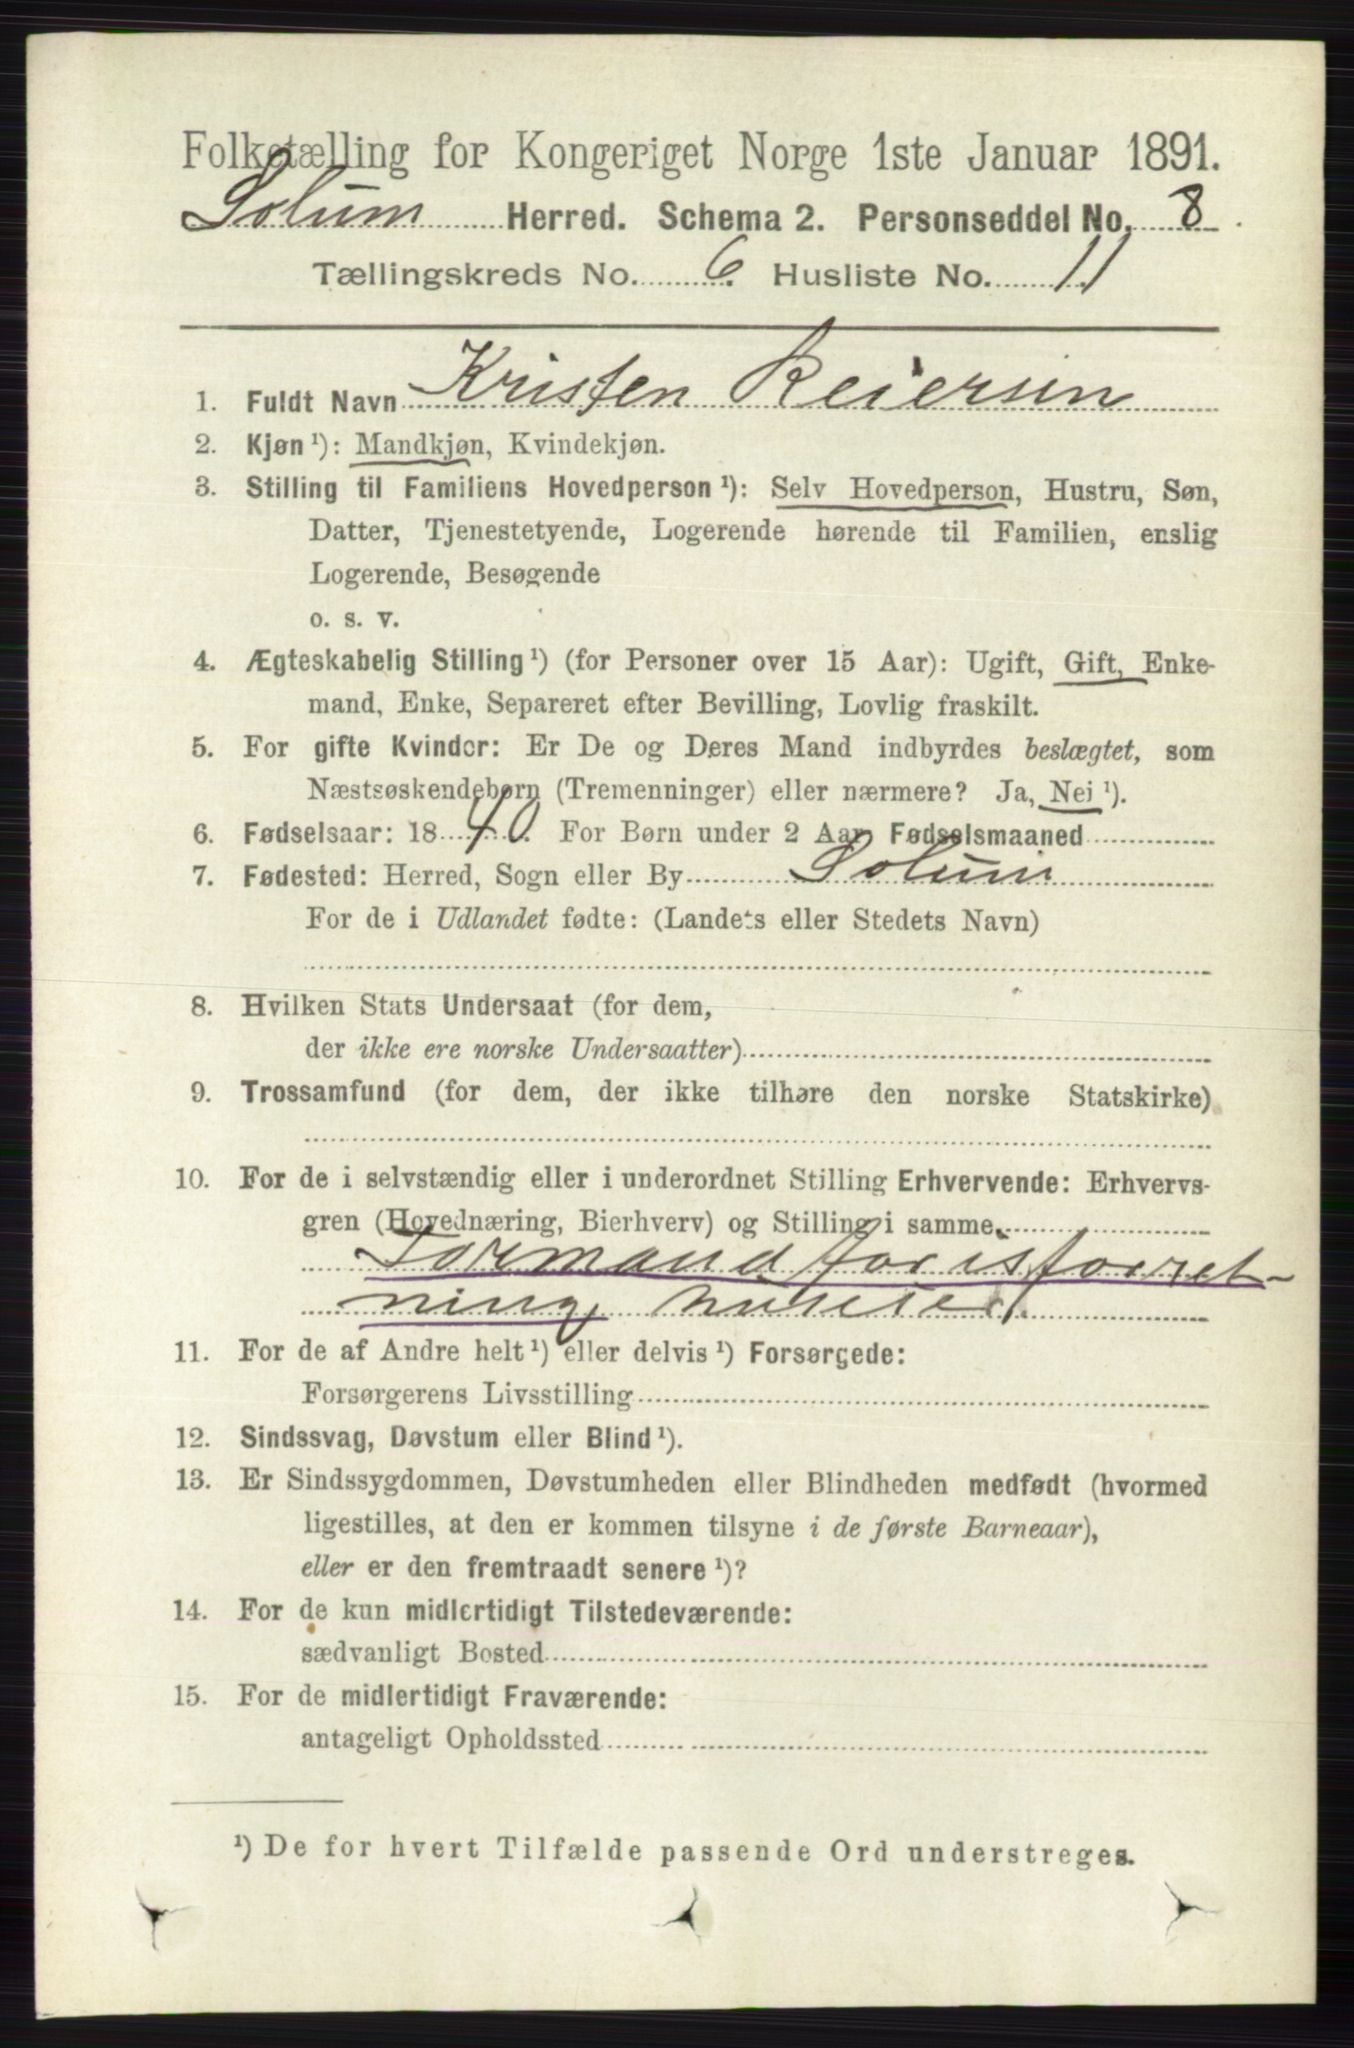 Folketælling for Kongeriget Norge 1ste Januar 1891.
Solum Herred. Schema 2. Personseddel No. 8
Tællingskreds No. 6 Husliste No. 11
1. Fuldt Navn Kristen Reiersen
2. Kjøn ¹): Mandkjøn, Kvindekjøn.
3. Stilling til Familiens Hovedperson ¹): Selv Hovedperson, Hustru, Søn,
Datter, Tjenestetyende, Logerende hørende til Familien, enslig
Logerende, Besøgende
o. s. v.
4. Ægteskabelig Stilling ¹) (for Personer over 15 Aar): Ugift, Gift, Enke-
mand, Enke, Separeret efter Bevilling, Lovlig fraskilt.
5. For gifte Kvinder: Er De og Deres Mand indbyrdes beslægtet, som
Næstsøskendebørn (Tremenninger) eller nærmere? Ja, Nei ¹).
6. Fødselsaar: 1840. For Børn under 2 Aar Fødselsmaaned
7. Fødested: Herred, Sogn eller By Solum
For de i Udlandet fødte: (Landets eller Stedets Navn)
8. Hvilken Stats Undersaat (for dem,
der ikke ere norske Undersaatter)
9. Trossamfund (for dem, der ikke tilhøre den norske Statskirke)
10. For de i selvstændig eller i underordnet Stilling Erhvervende: Erhvervs-
gren (Hovednæring, Bierhverv) og Stilling i samme.
Formand for isforret-
ning,
11. For de af Andre helt ¹) eller delvis ¹) Forsørgede:
Forsørgerens Livsstilling
12. Sindssvag, Døvstum eller Blind ¹).
13. Er Sindssygdommen, Døvstumheden eller Blindheden medfødt (hvormed
ligestilles, at den er kommen tilsyne i de første Barneaar),
eller er den fremtraadt senere ¹)?
14. For de kun midlertidigt Tilstedeværende:
sædvanligt Bosted
15. For de midlertidigt Fraværende:
antageligt Opholdssted
¹) De for hvert Tilfælde passende Ord understreges.